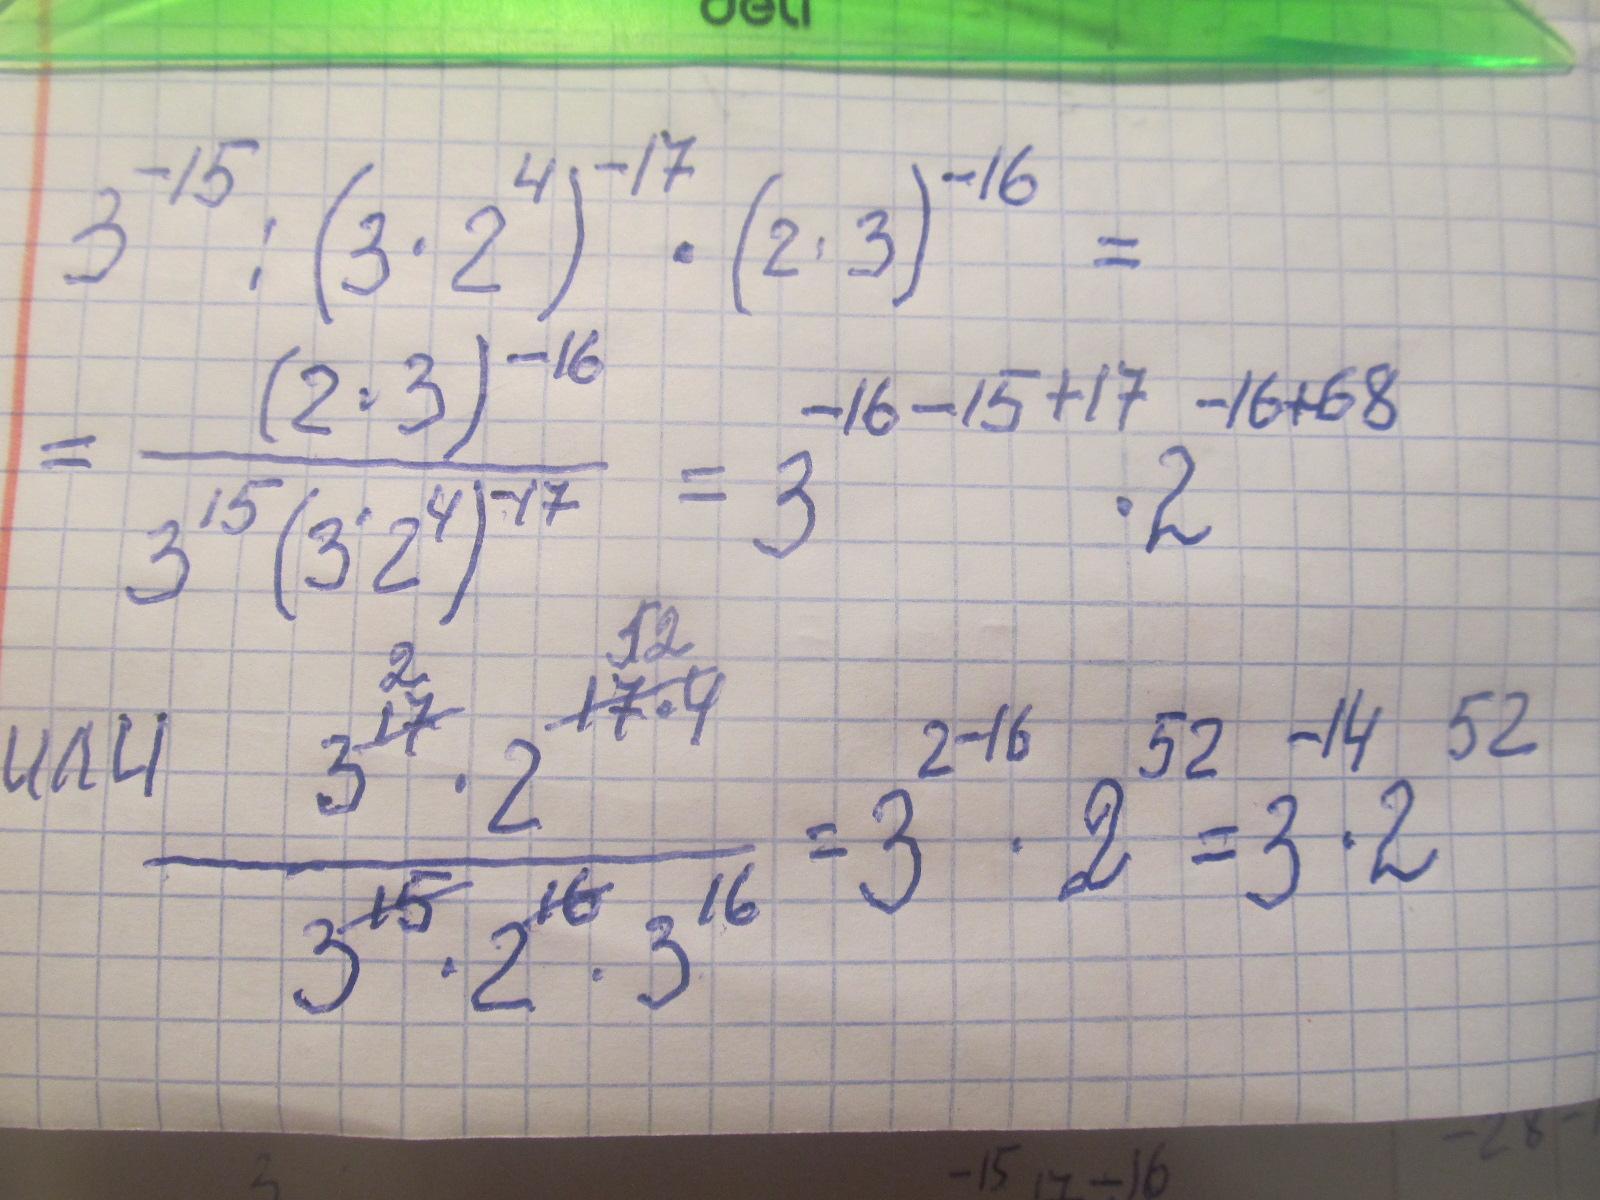 deli
3^{-15} : (3 · 2^4)^{-17} · (2 · 3)^{-16} =
= \frac{(2 · 3)^{-16}}{3^{15} (3 · 2^4)^{-17}} = 3^{-16-15+17} · 2^{-16+68}
или \frac{3^{17} · 2^{17·4}}{3^{15} · 2^{16} · 3^{16}} = 3^{2-16} · 2^{52} = 3^{-14} · 2^{52}
2 52
-15 17 -16